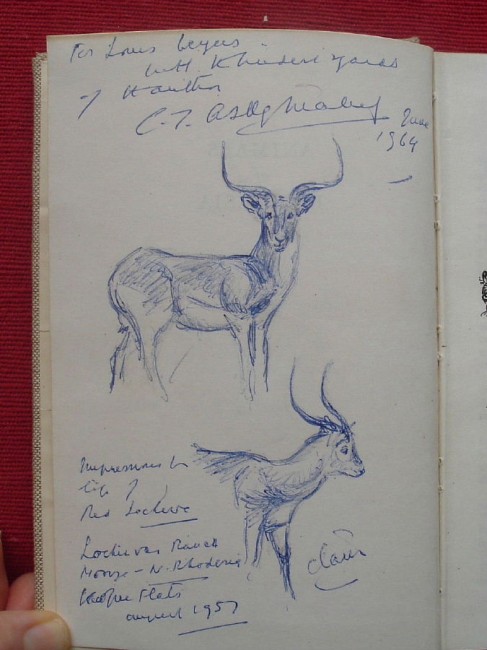 For Louis
with Kindest regards
of
C. T. Astley Maberly June
1964
Impressions
life of
Red Lechwe
Lochinvar Ranch
Monze - N. Rhodesia
Kafue Flats
august 1957